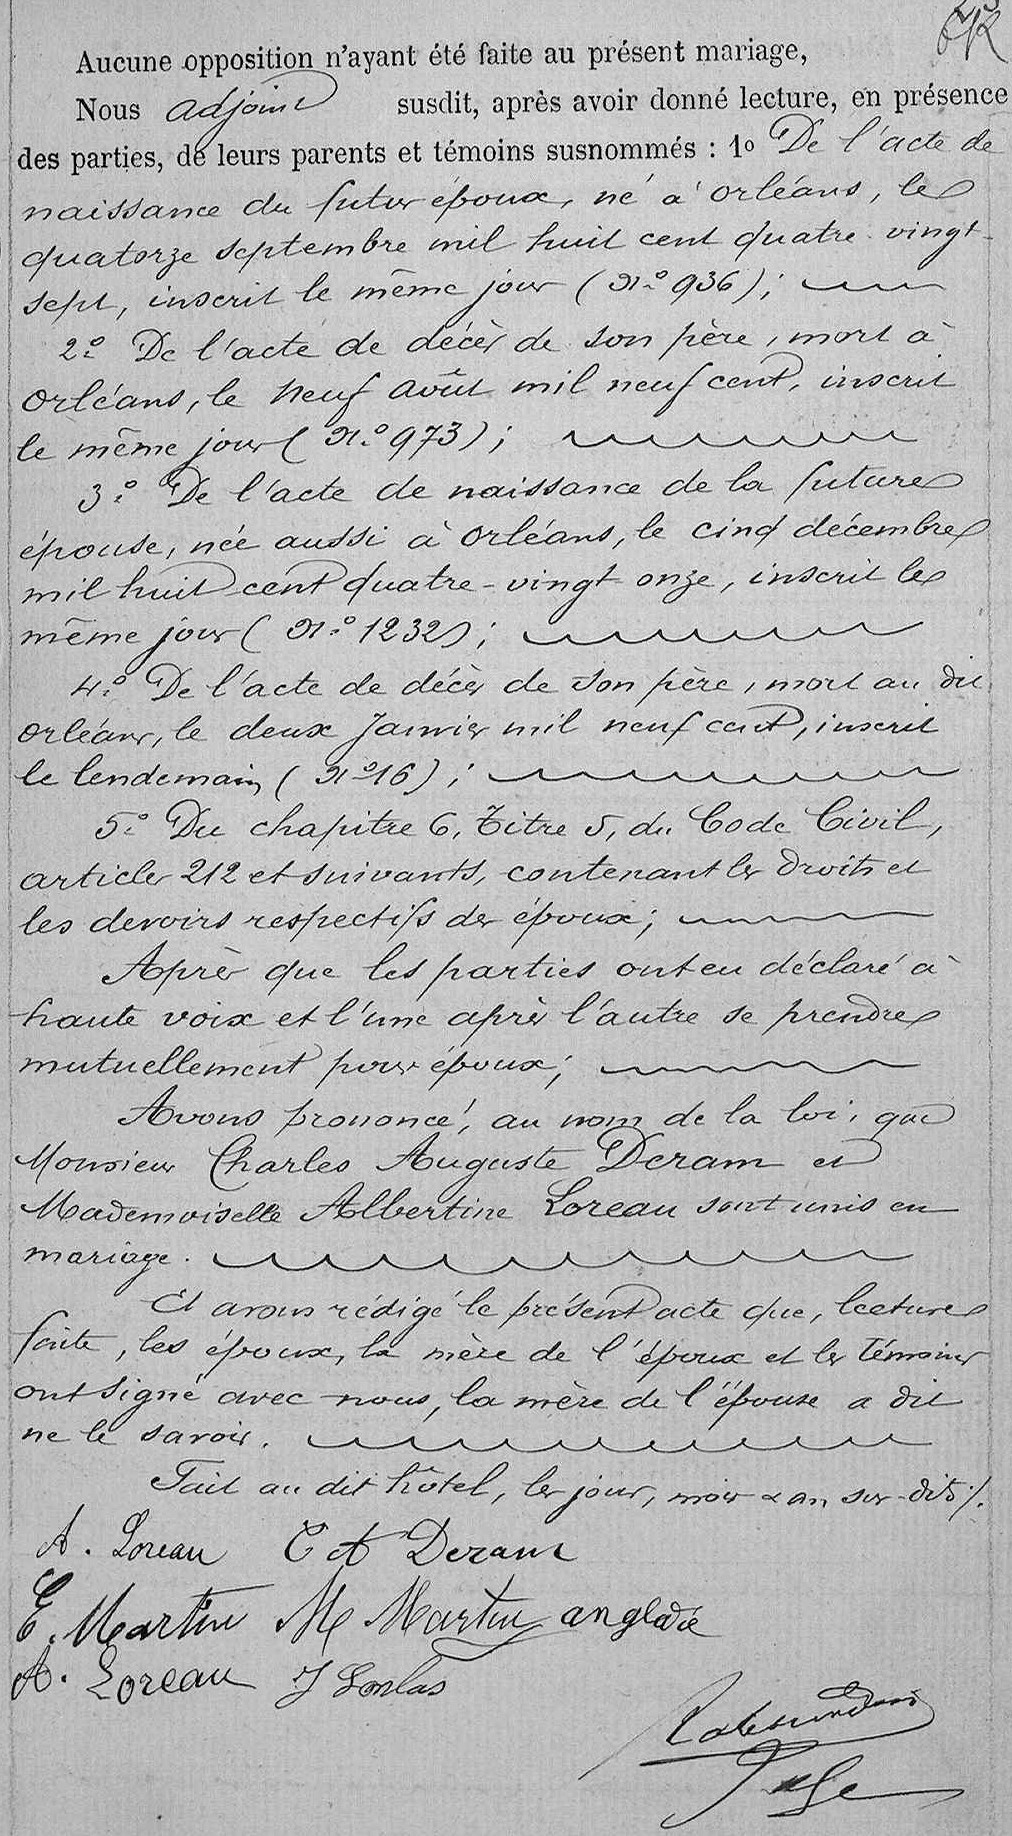 Aucune opposition n'ayant été faite au présent mariage,
Nous adjoint susdit, après avoir donné lecture, en présence
des parties, de leurs parents et témoins susnommés : 1o De l'acte de
naissance du futur époux, né à Orléans, le
quatorze septembre mil huit cent quatre-vingt-
sept, inscrit le même jour (No 936);
2o De l'acte de décès de son père, mort à
Orléans, le neuf août mil neuf cent, inscrit
le même jour (No 973);
3o De l'acte de naissance de la future
épouse, née aussi à Orléans, le cinq décembre
mil huit cent quatre-vingt onze, inscrit le
même jour (No 1232);
4o De l'acte de décès de son père, mort au dit
Orléans, le deux Janvier mil neuf cent, inscrit
le lendemain (No 16);
5o Du chapitre 6, Titre 5, du Code Civil,
articles 212 et suivants, contenant les droits et
les devoirs respectifs des époux;
Après que les parties ont eu déclaré à
haute voix et l'une après l'autre se prendre
mutuellement pour époux;
Avons prononcé, au nom de la loi, que
Monsieur Charles Auguste Deram et
Mademoiselle Albertine Loreau sont unis en
mariage.
Et avons rédigé le présent acte que, lecture
faite, les époux, la mère de l'époux et les témoins
ont signé avec nous, la mère de l'épouse a dit
ne le savoir.
Fait au dit hôtel, les jour, mois & an sus-dits ./.
A. Loreau C A Deram
E. Martin M Martin anglade
A. Loreau J